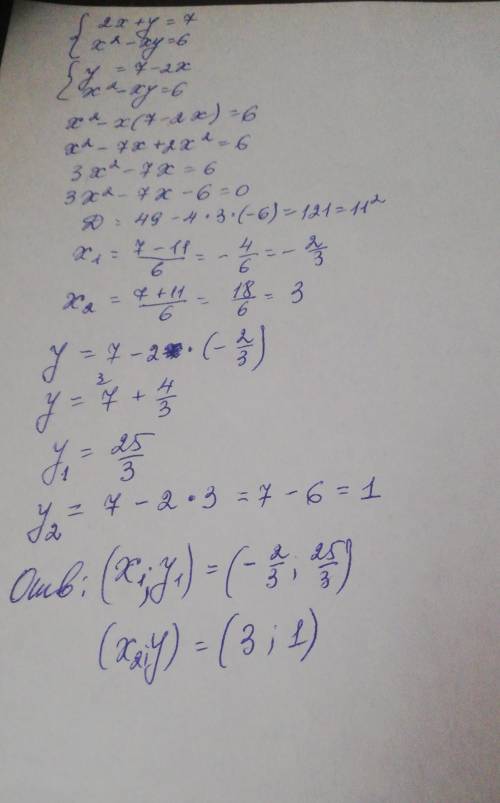 { 2x + y = 7
x² - xy = 6
{ y = 7 - 2x
x² - xy = 6
x² - x(7 - 2x) = 6
x² - 7x + 2x² = 6
3x² - 7x = 6
3x² - 7x - 6 = 0
D = 49 - 4 · 3 · (-6) = 121 = 11²
x₁ = (7 - 11)/6 = - 4/6 = - 2/3
x₂ = (7 + 11)/6 = 18/6 = 3
y = 7 - 2 · (- 2/3)
y = ³7 + 4/3
y₁ = 25/3
y₂ = 7 - 2 · 3 = 7 - 6 = 1
Отв: (x₁; y₁) = (- 2/3 ; 25/3)
(x₂; y) = (3 ; 1)